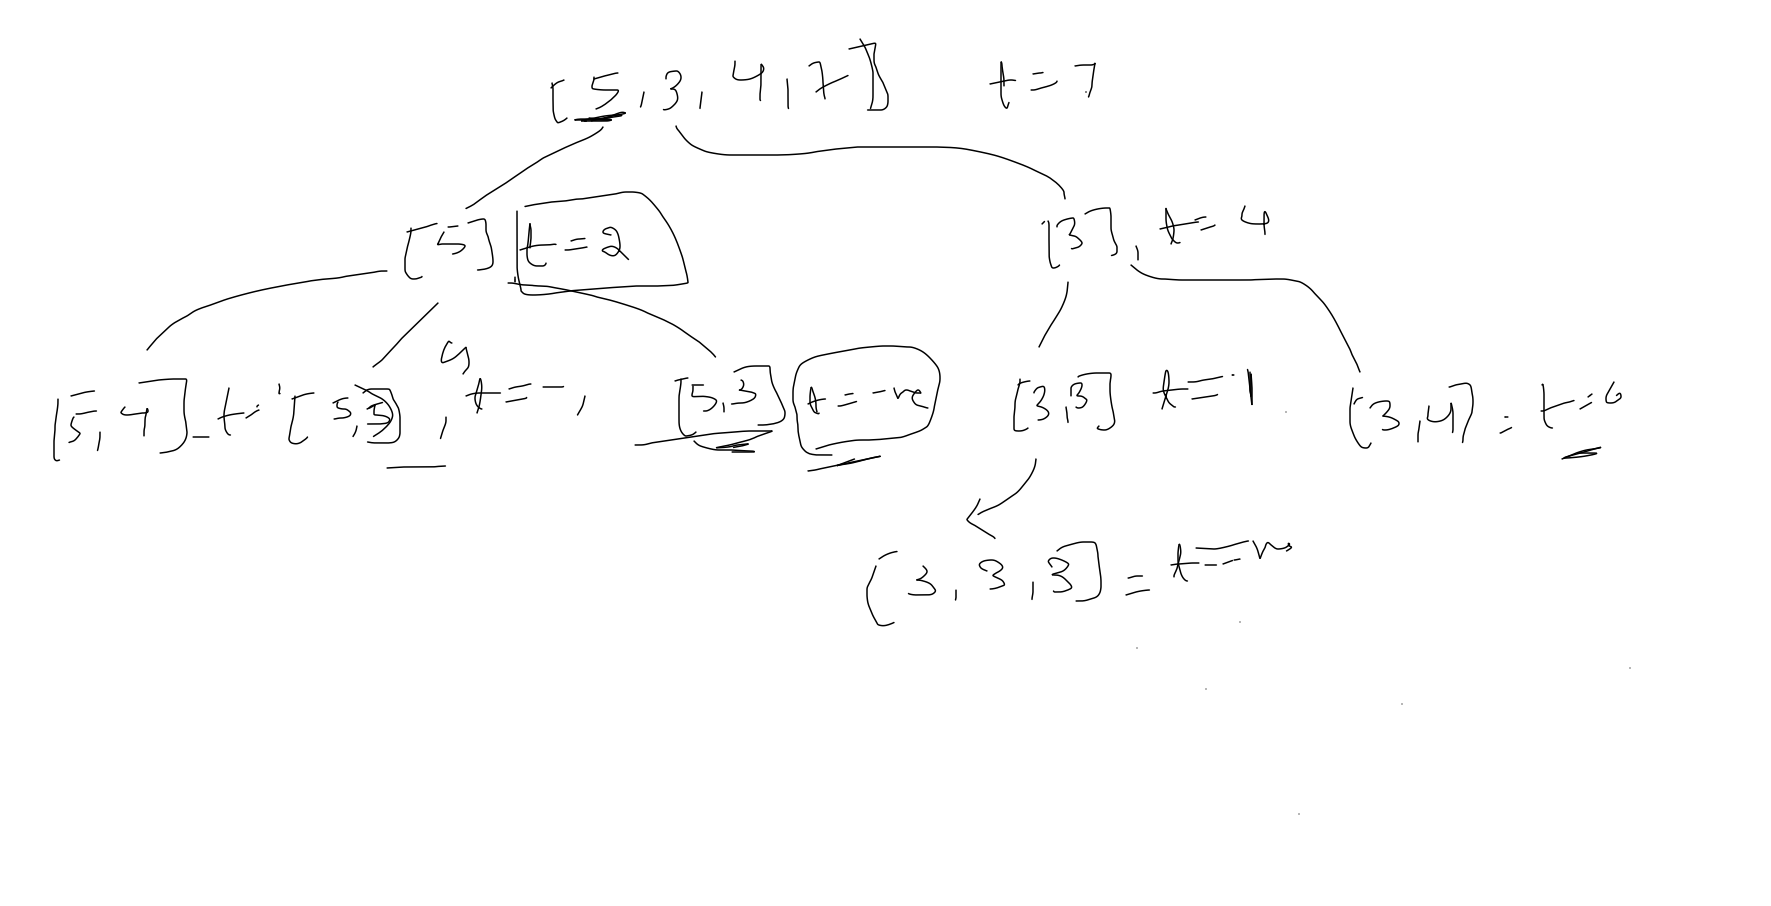 [5,3,4,7] t=7
[5], t=2 [3], t=4
[5,4] t= [5,5], t=-, [5,3] t=-ve [3,3] t=1 [3,4] : t=0
[3,3,3] =